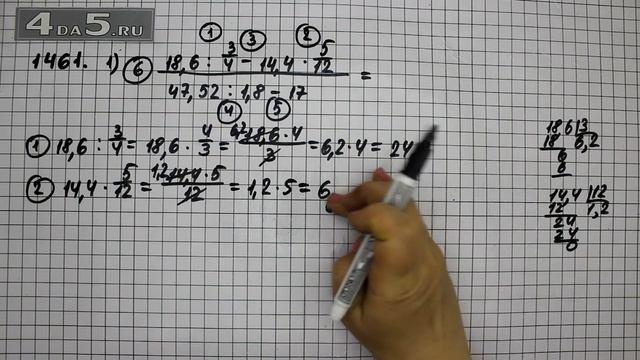 4DA5.RU
① ③ ②
1461. 1) ⑥ (18,6 : 3/4 − 14,4 · 5/12) / (47,52 : 1,8 − 17) =
④ ⑤
① 18,6 : 3/4 = 18,6 · 4/3 = 6,2 18,6 · 4 / 3 = 6,2 · 4 = 24
② 14,4 · 5/12 = 1,2 14,4 · 5 / 12 = 1,2 · 5 = 6
18 6 | 3
18 | 6,2
6
6
14,4 | 12
12 | 1,2
24
24
0